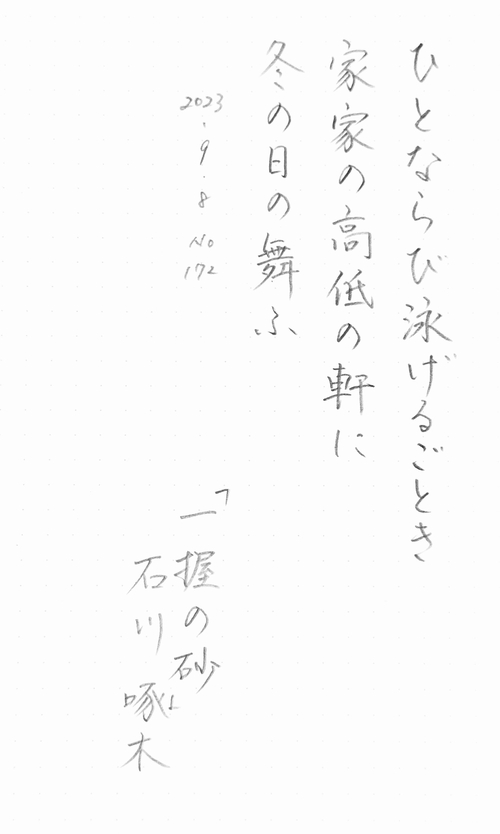 ひとならび泳げるごとき
家家の高低の軒に
冬の日の舞ふ
2023・9・8 No172
「一握の砂」
石川啄木